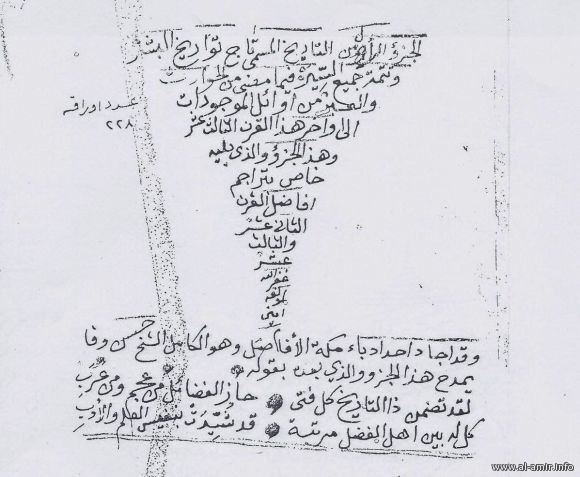 الجزؤ الرابع من التاريخ المسمى تاج تواريخ البشر
وتتمة جميع السير فيما مضى من الحوادث
والعبر من أوائل الموجودات
الى أواخر هذا القرن الثالث عشر
وهذا الجزؤ والذي يليه
خاص بتراجم
افاضل القرن
الثاني عشر
والثالث
عشر
غفر الله
لمؤلفه
امين
عدد اوراقه
٢٢٨
وقد اجاد احد ادباء مكة الأفاضل وهو الكامل الشيخ حسن وفا
يمدح هذا الجزؤ والذي بعده بقوله
لقد تضمن ذا التاريخ كل فتى حاز الفضائل من عجم ومن عرب
كل له بين اهل الفضل مرتبة قد شيدت بنفيس العلم والأدب
www.al-amir.info